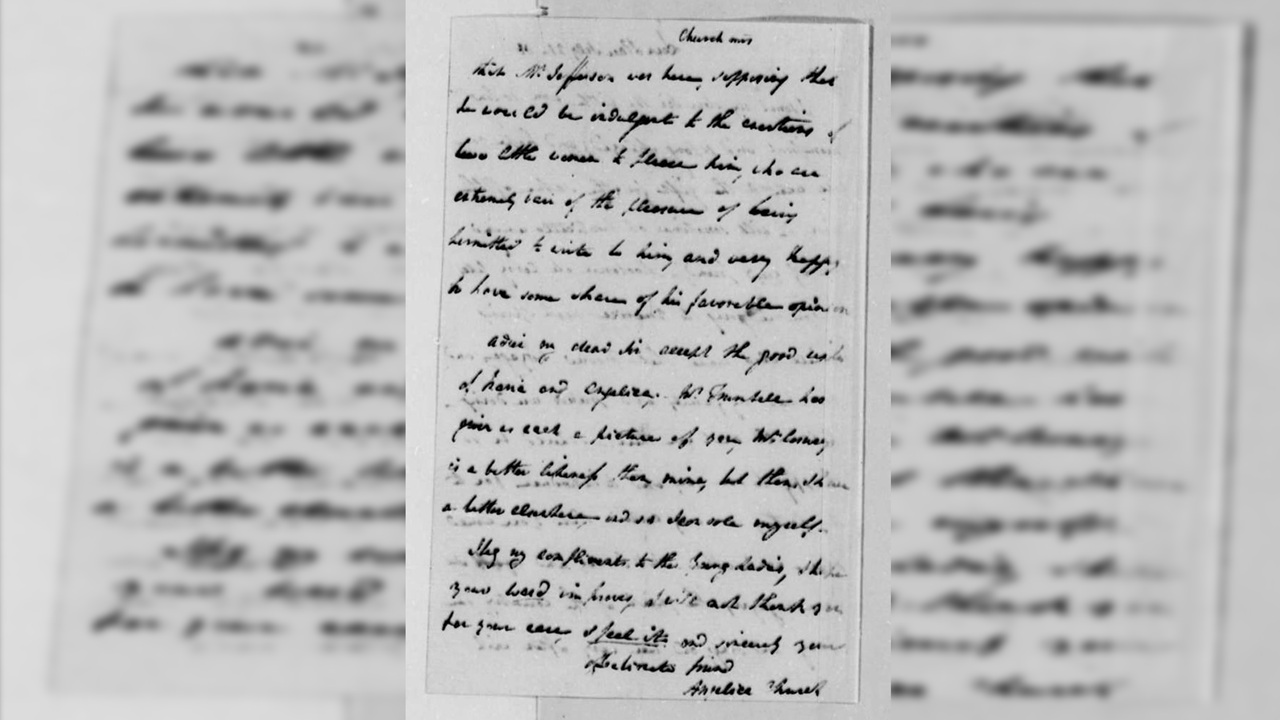 Church mrs
that Mr. Jefferson was here, supposing that
he would be indulgent to the exertions of
two little women to please him, who are
extremely vain of the pleasure of being
permitted to write to him, and very happy
to have some share of his favorable opinion
adieu my dear Sir accept the good wishes
of Maria and Angelica. Mr. Trumbull has
given us each a picture of you, Mrs. Cosway's
is a better likeness than mine, but then I have
a better elsewhere and so I console myself.
I beg my compliments to the Young Ladies, I hope
your ward improves, I will not thank you
for your care, I feel it, and sincerely your
affectionate friend
Angelica Church